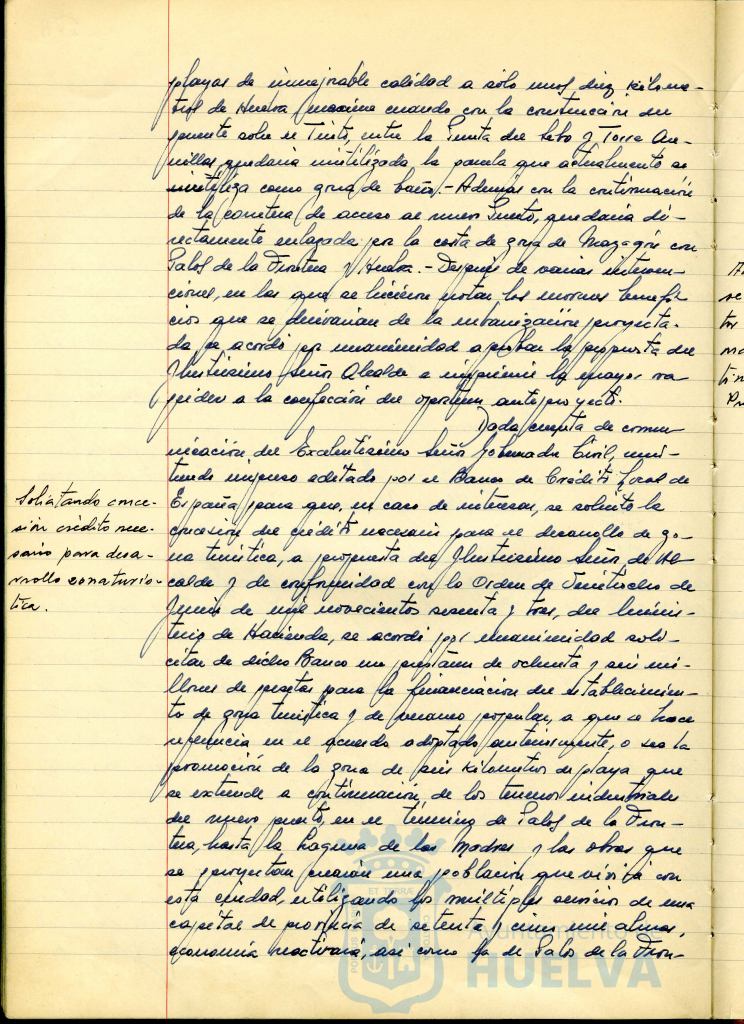 playas de inmejorable calidad a sólo unos diez kilóme-
tros de Huelva, máxime cuando con la construcción del
puente sobre el Tinto, entre la Punta del Sebo y Torre Are-
nillas, quedaría inutilizada la parcela que actualmente se
utiliza como zona de baño.- Además con la continuación
de la carretera de acceso al nuevo Puerto, quedaría di-
rectamente enlazada por la costa de zona de Mazagón con
Palos de la Frontera y Huelva.- Después de varias interven-
ciones, en las que se hicieron notar los enormes benefi-
cios que se derivarían de la urbanización proyecta-
da se acordó por unanimidad aprobar la propuesta del
Ilustrísimo Señor Alcalde e imprimir la mayor ra-
pidez a la confección del oportuno anteproyecto.
Dada cuenta de comu-
nicación del Excelentísimo Señor Gobernador Civil, remi-
tiendo impreso editado por el Banco de Crédito Local de
España para que, en caso de interesar, se solicite la
Solicitando conce-
sión crédito nece-
sario para desa-
rrollo zona turís-
tica.
concesión del crédito necesario para el desarrollo de zo-
na turística, a propuesta del Ilustrísimo Señor de Al-
calde y de conformidad con la Orden de veintitres de
Junio de mil novecientos sesenta y tres, del Minis-
terio de Hacienda, se acordó por unanimidad soli-
citar de dicho Banco un préstamo de ochenta y seis mi-
llones de pesetas para la financiación del establecimien-
to de zona turística y de verano popular, a que se hace
referencia en el acuerdo adoptado anteriormente, o sea la
promoción de la zona de seis kilómetros de playa que
se extiende a continuación de los terrenos industriales
del nuevo puerto, en el término de Palos de la Fron-
tera, hasta la Laguna de las Madres y las obras que
se proyectan crearán una población que vivirá con
esta ciudad, utilizando los múltiples servicios de una
capital de provincia de setenta y cinco mil almas,
economía reactivará, así como la de Palos de la Fron-
Ayuntamiento de
HUELVA